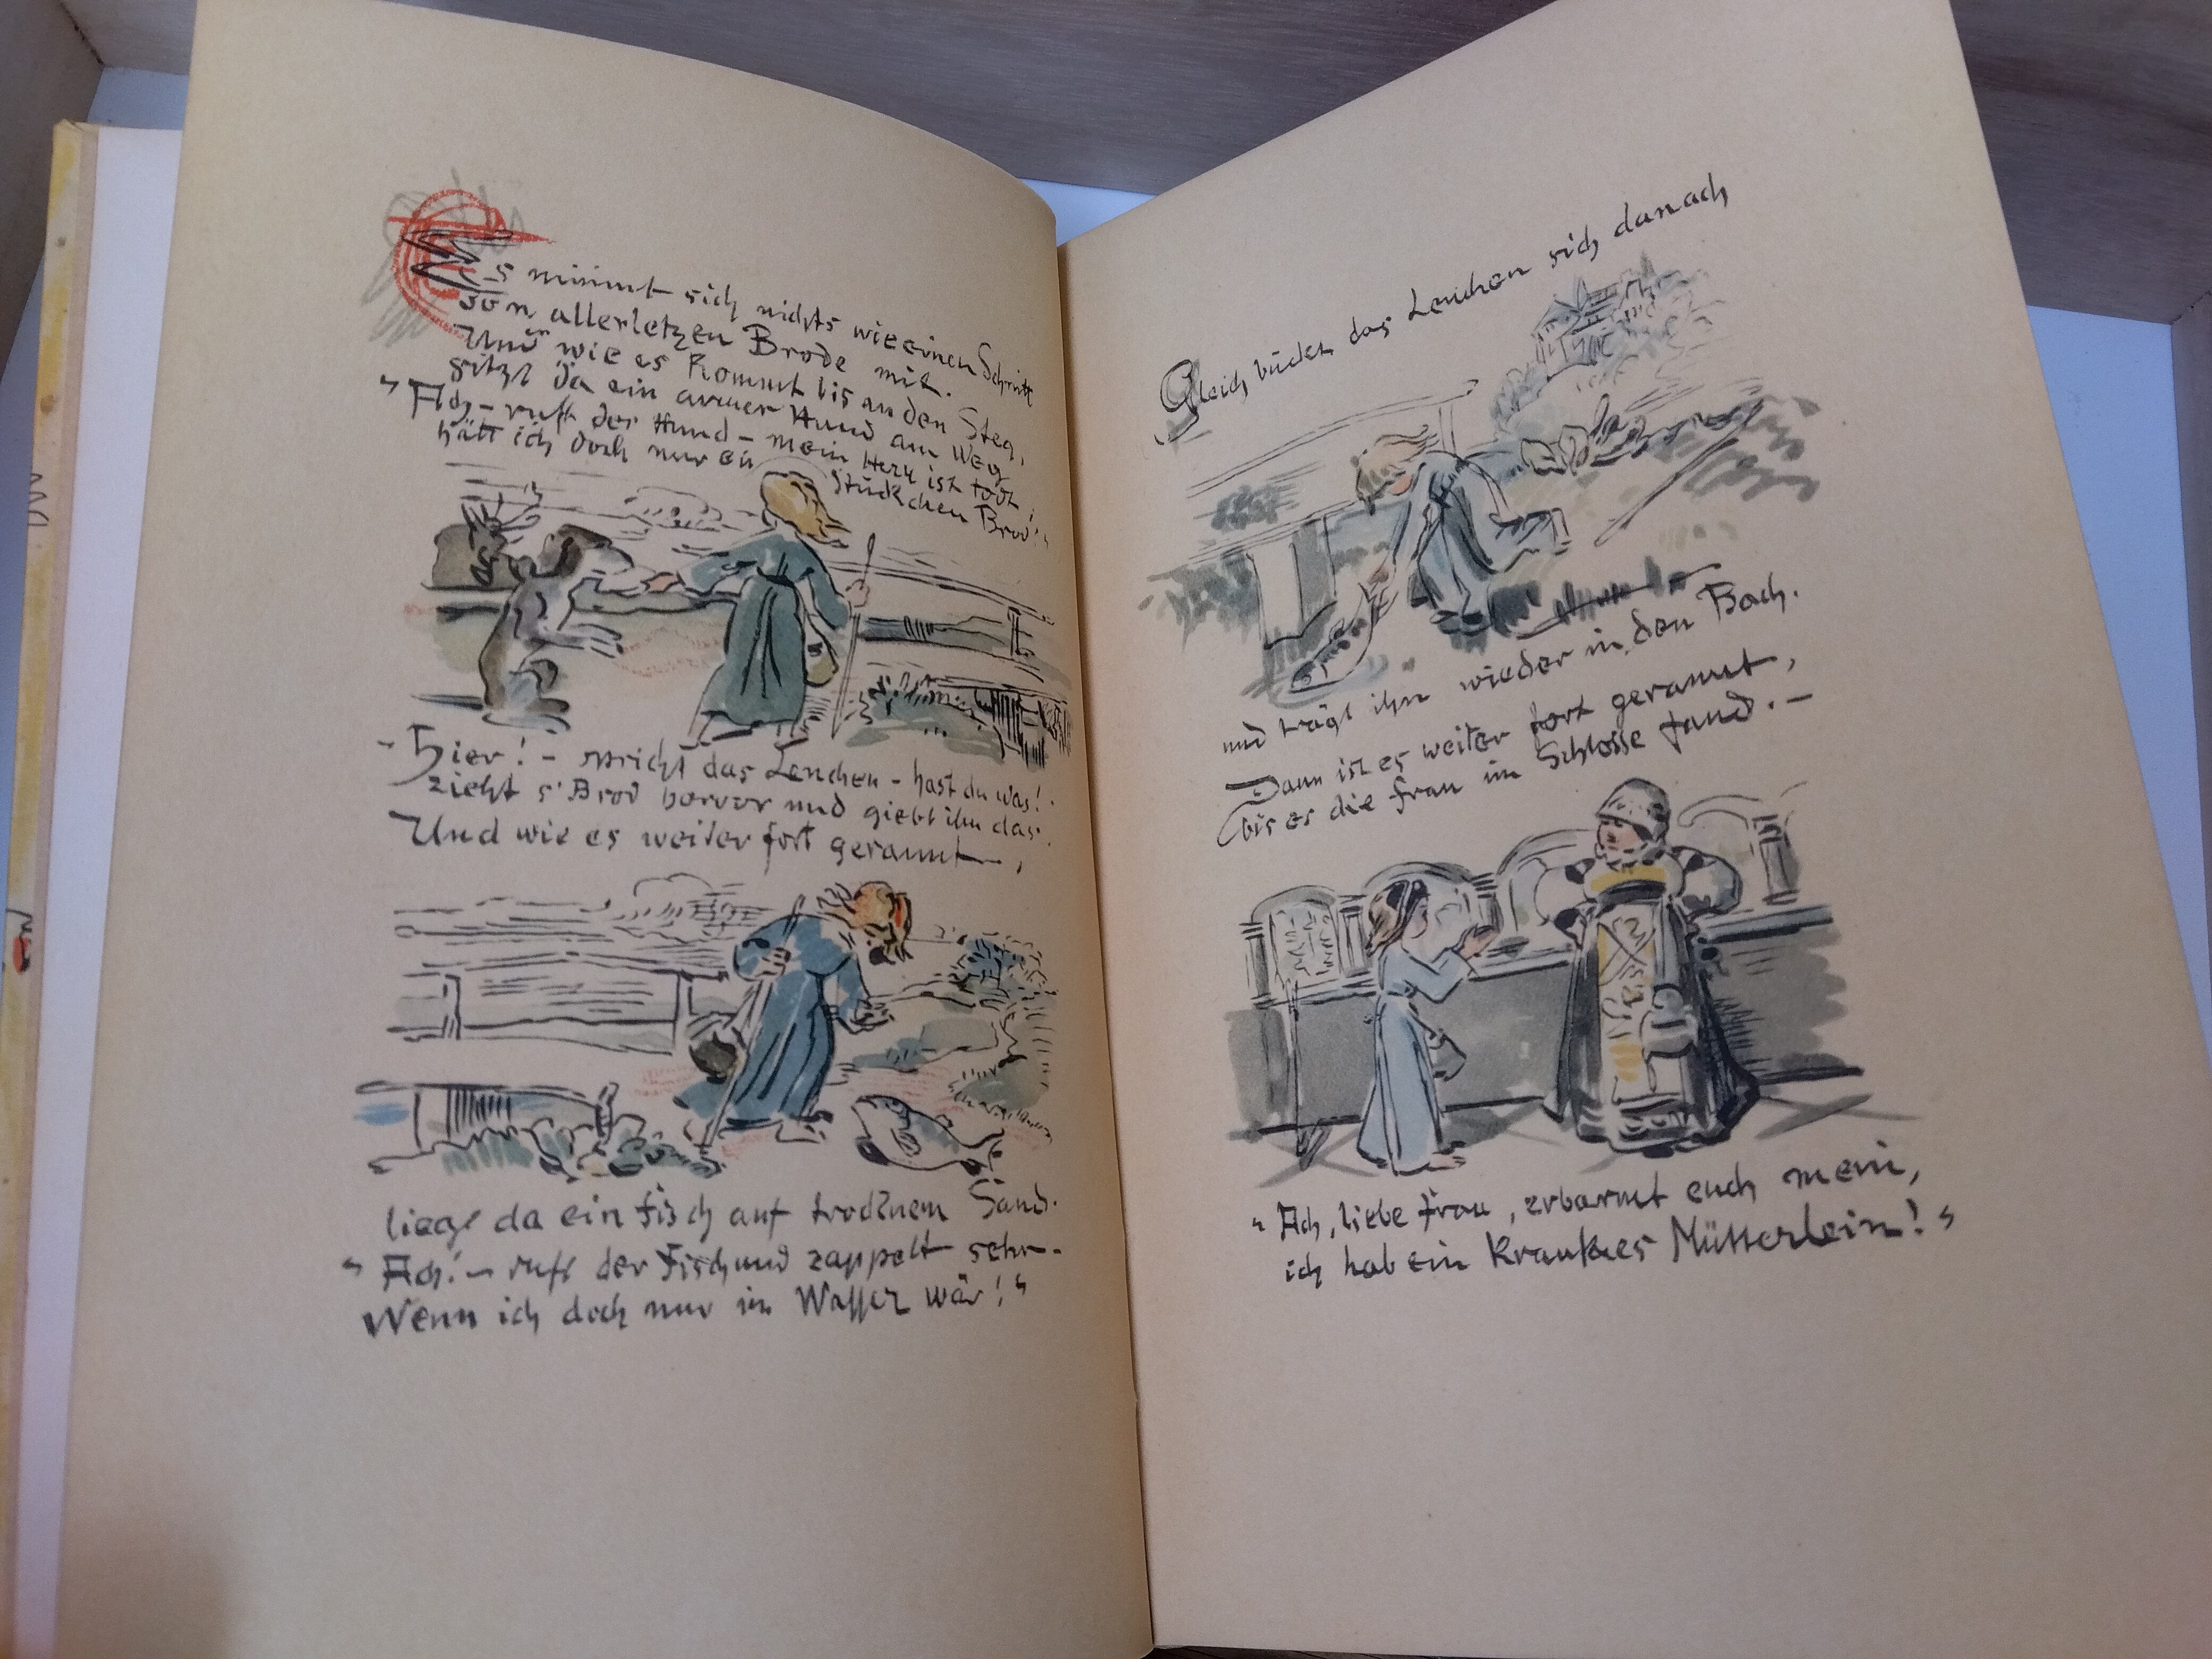 Es nimmt sich nichts wie einen Schnitt
von allerletzen Brode mit.
Und wie es kommt bis an den Steg,
sitzt da ein armer Hund am Weg
"Ach - ruft der Hund - mein Herr ist todt,
hätt ich doch nur ein
Stückchen Brod!"
- Hier! - spricht das Lenchen - hast du was!
zieht s'Brod hervor und giebt ihm das.
Und wie es weiter fort gerannt,
liegt da ein Fisch auf trocknem Sand.
"Ach! - ruft der Fisch und zappelt sehr -
Wenn ich doch nur im Wasser wär!"
Gleich bücket das Lenchen sich danach
und trägt ihn wieder in den Bach.
Dann ist es weiter fort gerannt,
bis es die Frau im Schlosse fand. -
"Ach, liebe Frau, erbarmt euch mein,
ich hab ein krankes Mütterlein!"